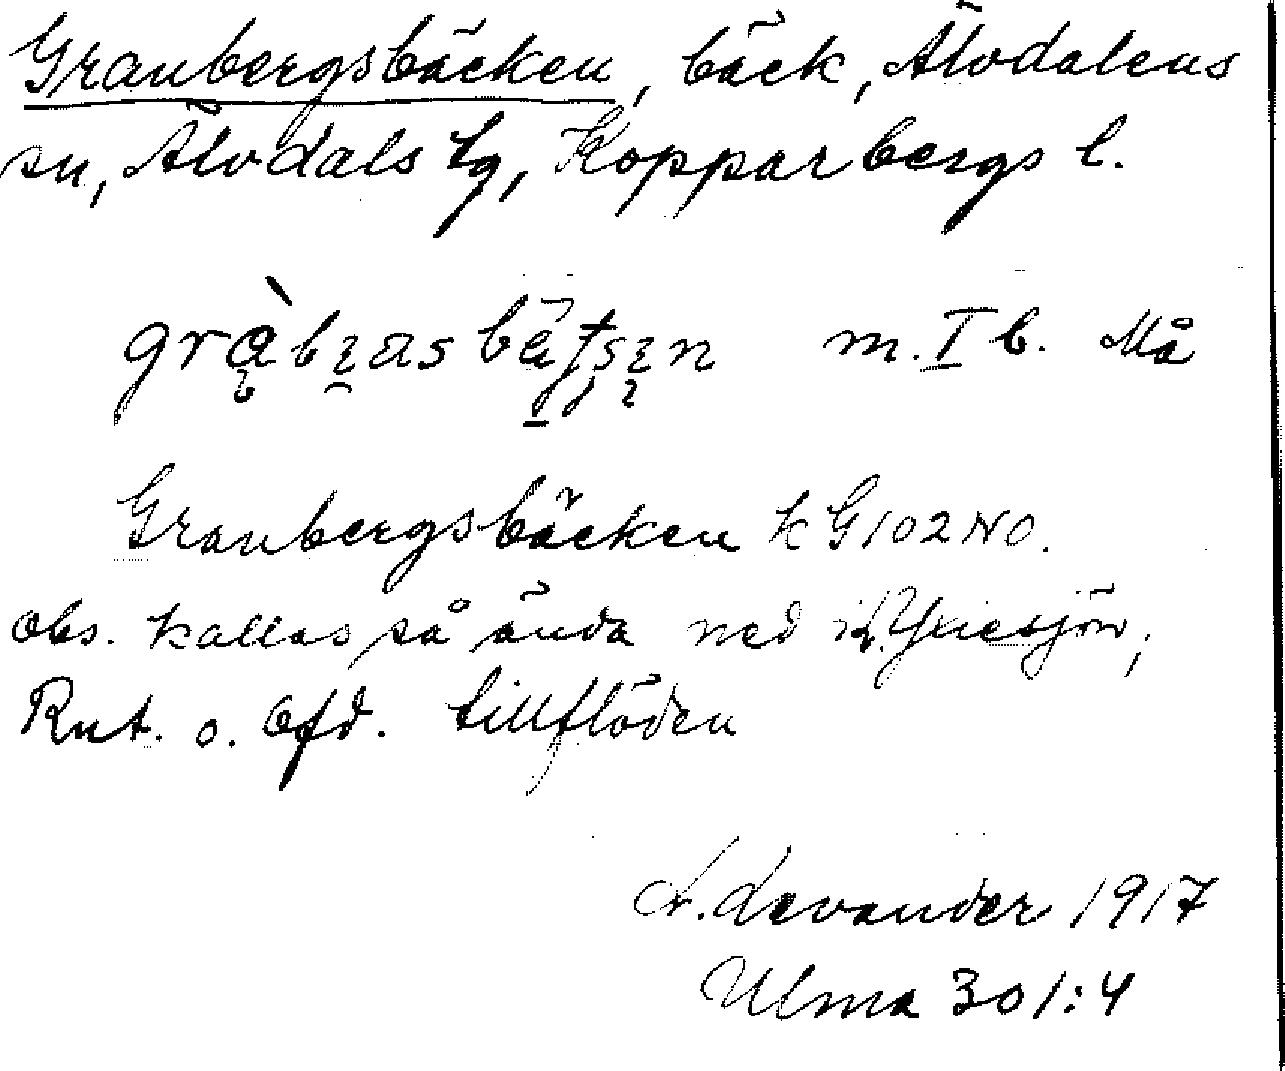 Granbergsbäcken, bäck, Älvdalens
sn, Älvdals tg, Kopparbergs l.
m. I b. Må
Granbergsbäcken k G 102 NO.
obs. kallas så ända ned
Rut. o. Ofd. tillflöden
L. Levander 1917
Ulma 301:4